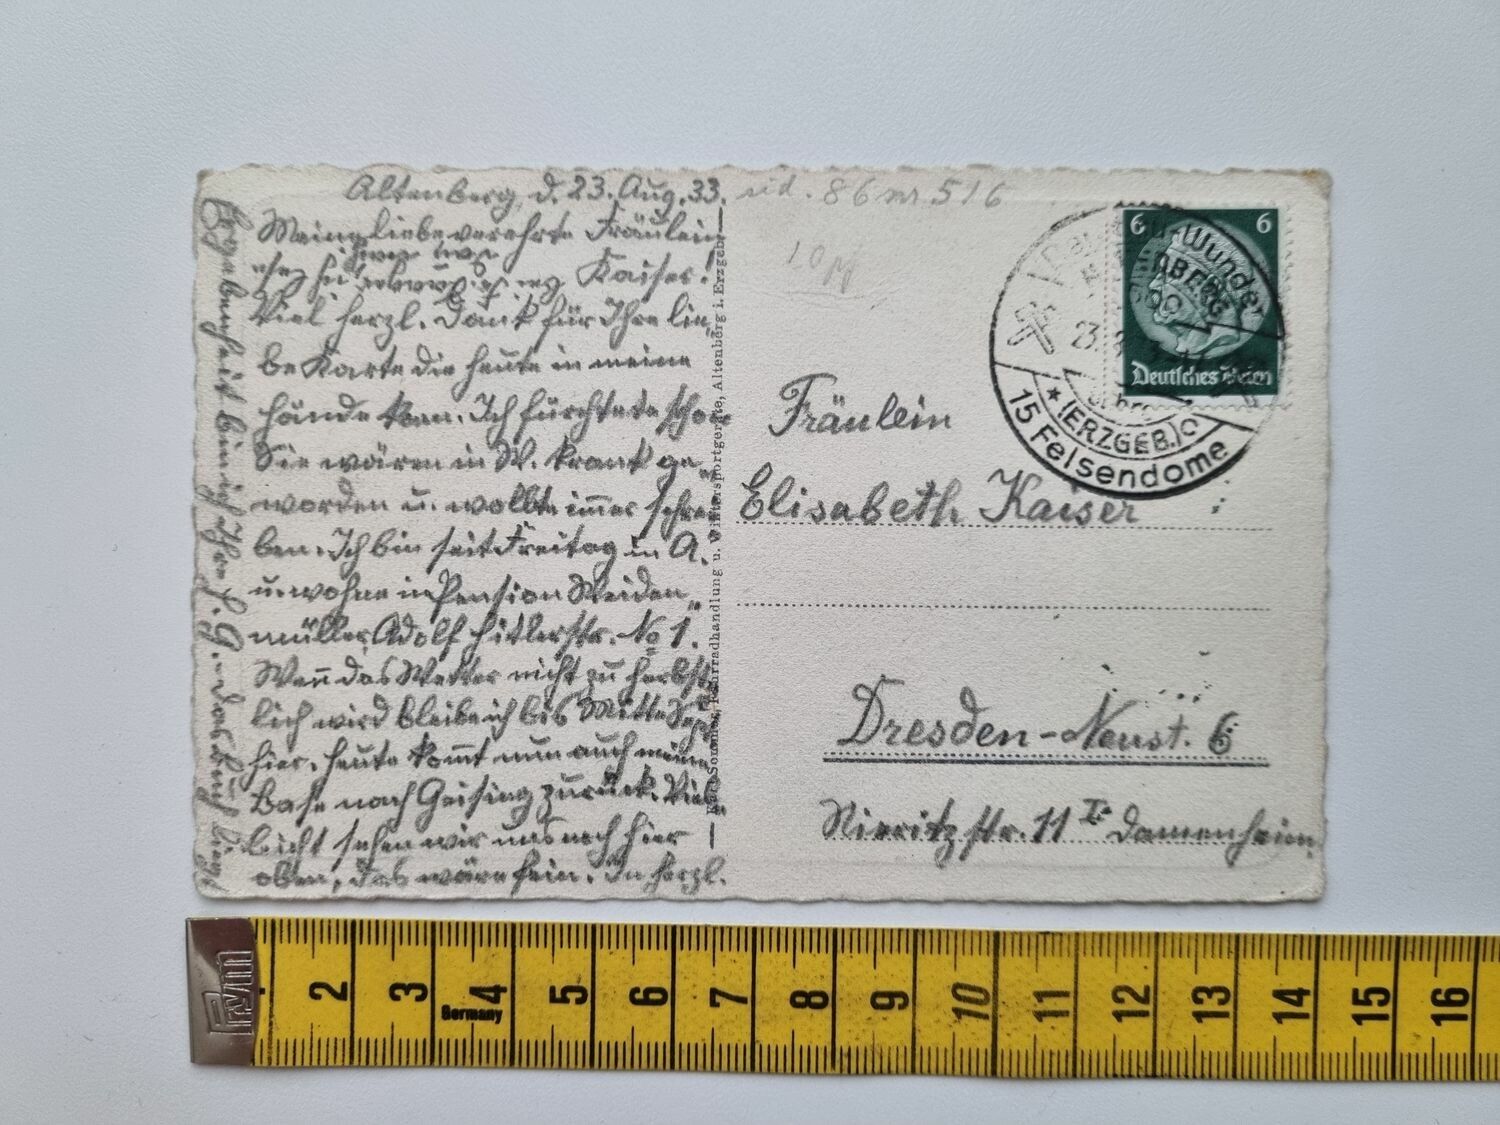 Altenberg, d. 23. Aug. 33.
Meine liebe verehrte Fräulein
Kaiser!
Viel herzl. Dank für Ihre lie-
be Karte die heute in meine
Hände kam. Ich fürchtete schon
Sie wären in W. krank ge-
worden u. wollte immer schrei
ben. Ich bin seit Freitag in A.
u. wohne in Pension Weiden-
müller, Adolf Hitlerstr. No 1.
Wenn das Wetter nicht zu herbst
lich wird bleibe ich bis Mitte Sept
hier. Heute kommt nun auch meine
Base nach Geising zurück. Viel
leicht sehen wir uns noch hier
oben, das wäre fein. In herzl.
Ergebenheit bin ich Ihre
Sommer, Fahrradhandlung u. Wintersportgeräte, Altenberg i. Erzgeb.
86 nr. 516
10
6 6
Deutsches Reich
Wunder
23.
(ERZGEB.)
15 Felsendome
Fräulein
Elisabeth Kaiser
Dresden-Neust. 6
Nieritzstr. 11 I. Damenheim
Prym
2 3 4 5 6 7 8 9 10 11 12 13 14 15 16
Germany